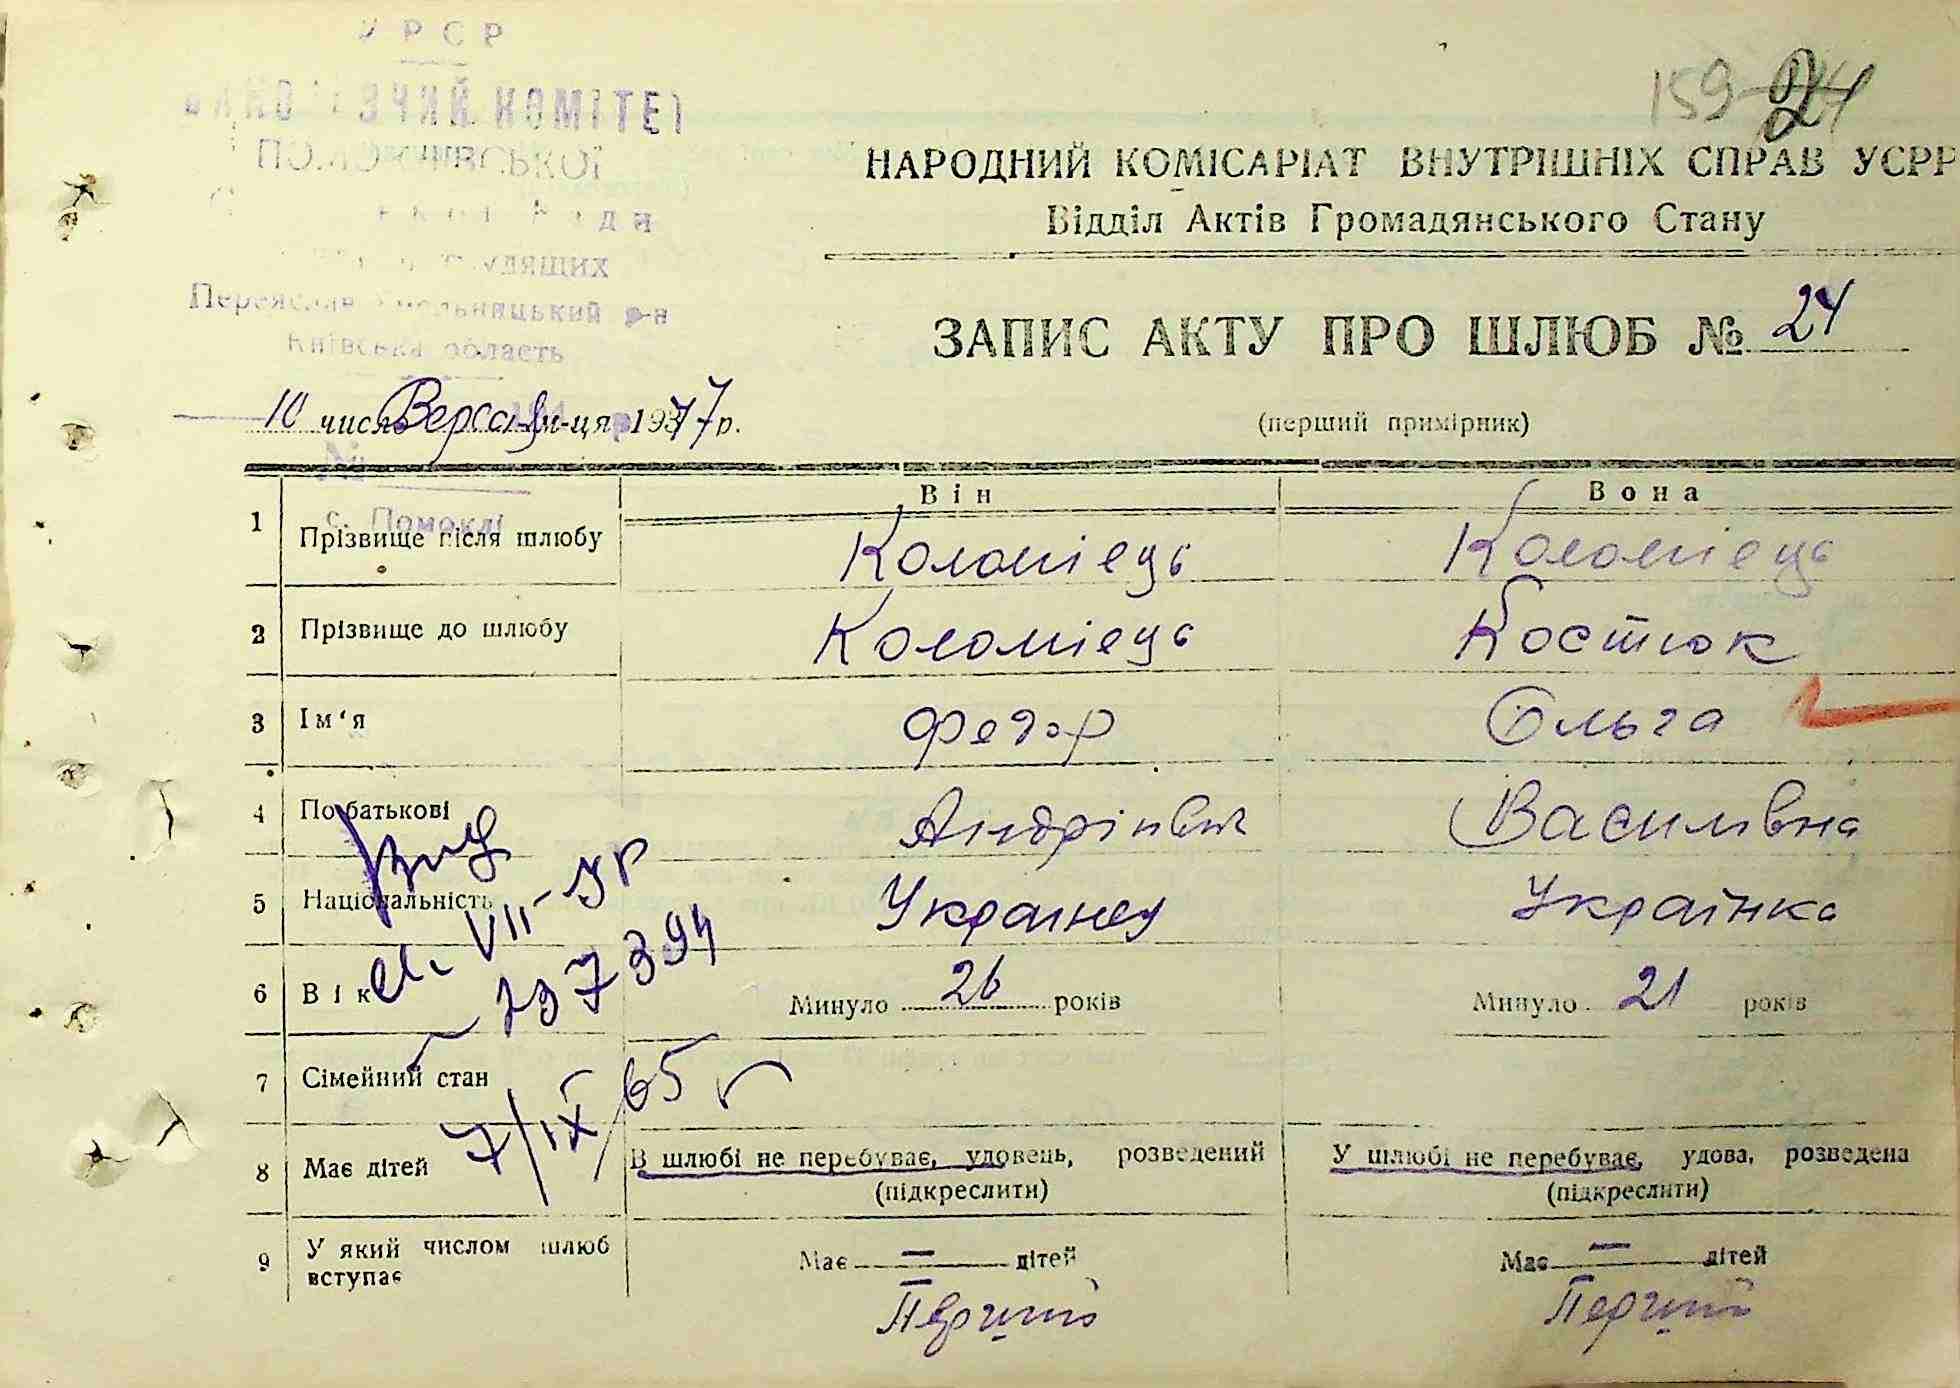 УРСР
КОМІТЕТ
трудящих
Переяслав-Хмельницький р-н
Київська область
159
24
НАРОДНИЙ КОМІСАРІАТ ВНУТРІШНІХ СПРАВ УСРР
Відділ Актів Громадянського Стану
ЗАПИС АКТУ ПРО ШЛЮБ № 24
10 числа Вересня м-ця 1947 р.
(перший примірник)
№
с. Помоклі
Він Вона
1 Прізвище після шлюбу Коломієць Коломієць
2 Прізвище до шлюбу Коломієць Костюк
3 Ім‘я Федор Ольга
4 По батькові Андрієвич Василівна
5 Національність Українец Українка
6 Вік Минуло 26 років Минуло 21 років
7 Сімейний стан
8 Має дітей В шлюбі не перебуває, удовець, розведений У шлюбі не перебуває, удова, розведена
(підкреслити) (підкреслити)
9 У який числом шлюб вступає Має — дітей Має — дітей
Перший Перший
VII-УР
7/IX 65 г